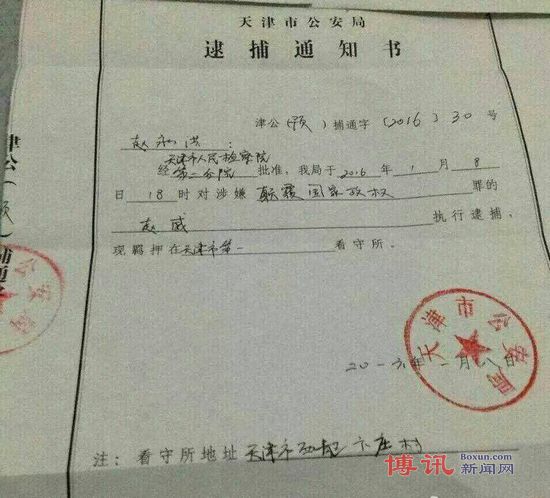 天津市公安局
逮捕通知书
津公(预)捕通字〔2016〕30号
赵永洪:
经天津市人民检察院第二分院批准,我局于2016年1月8
日18时对涉嫌颠覆国家政权罪的
赵威执行逮捕,
现羁押在天津市第一看守所。
天津市公安局
二〇一六年一月八日
注:看守所地址
博讯 Boxun.com 新闻网
津公(预)捕通字